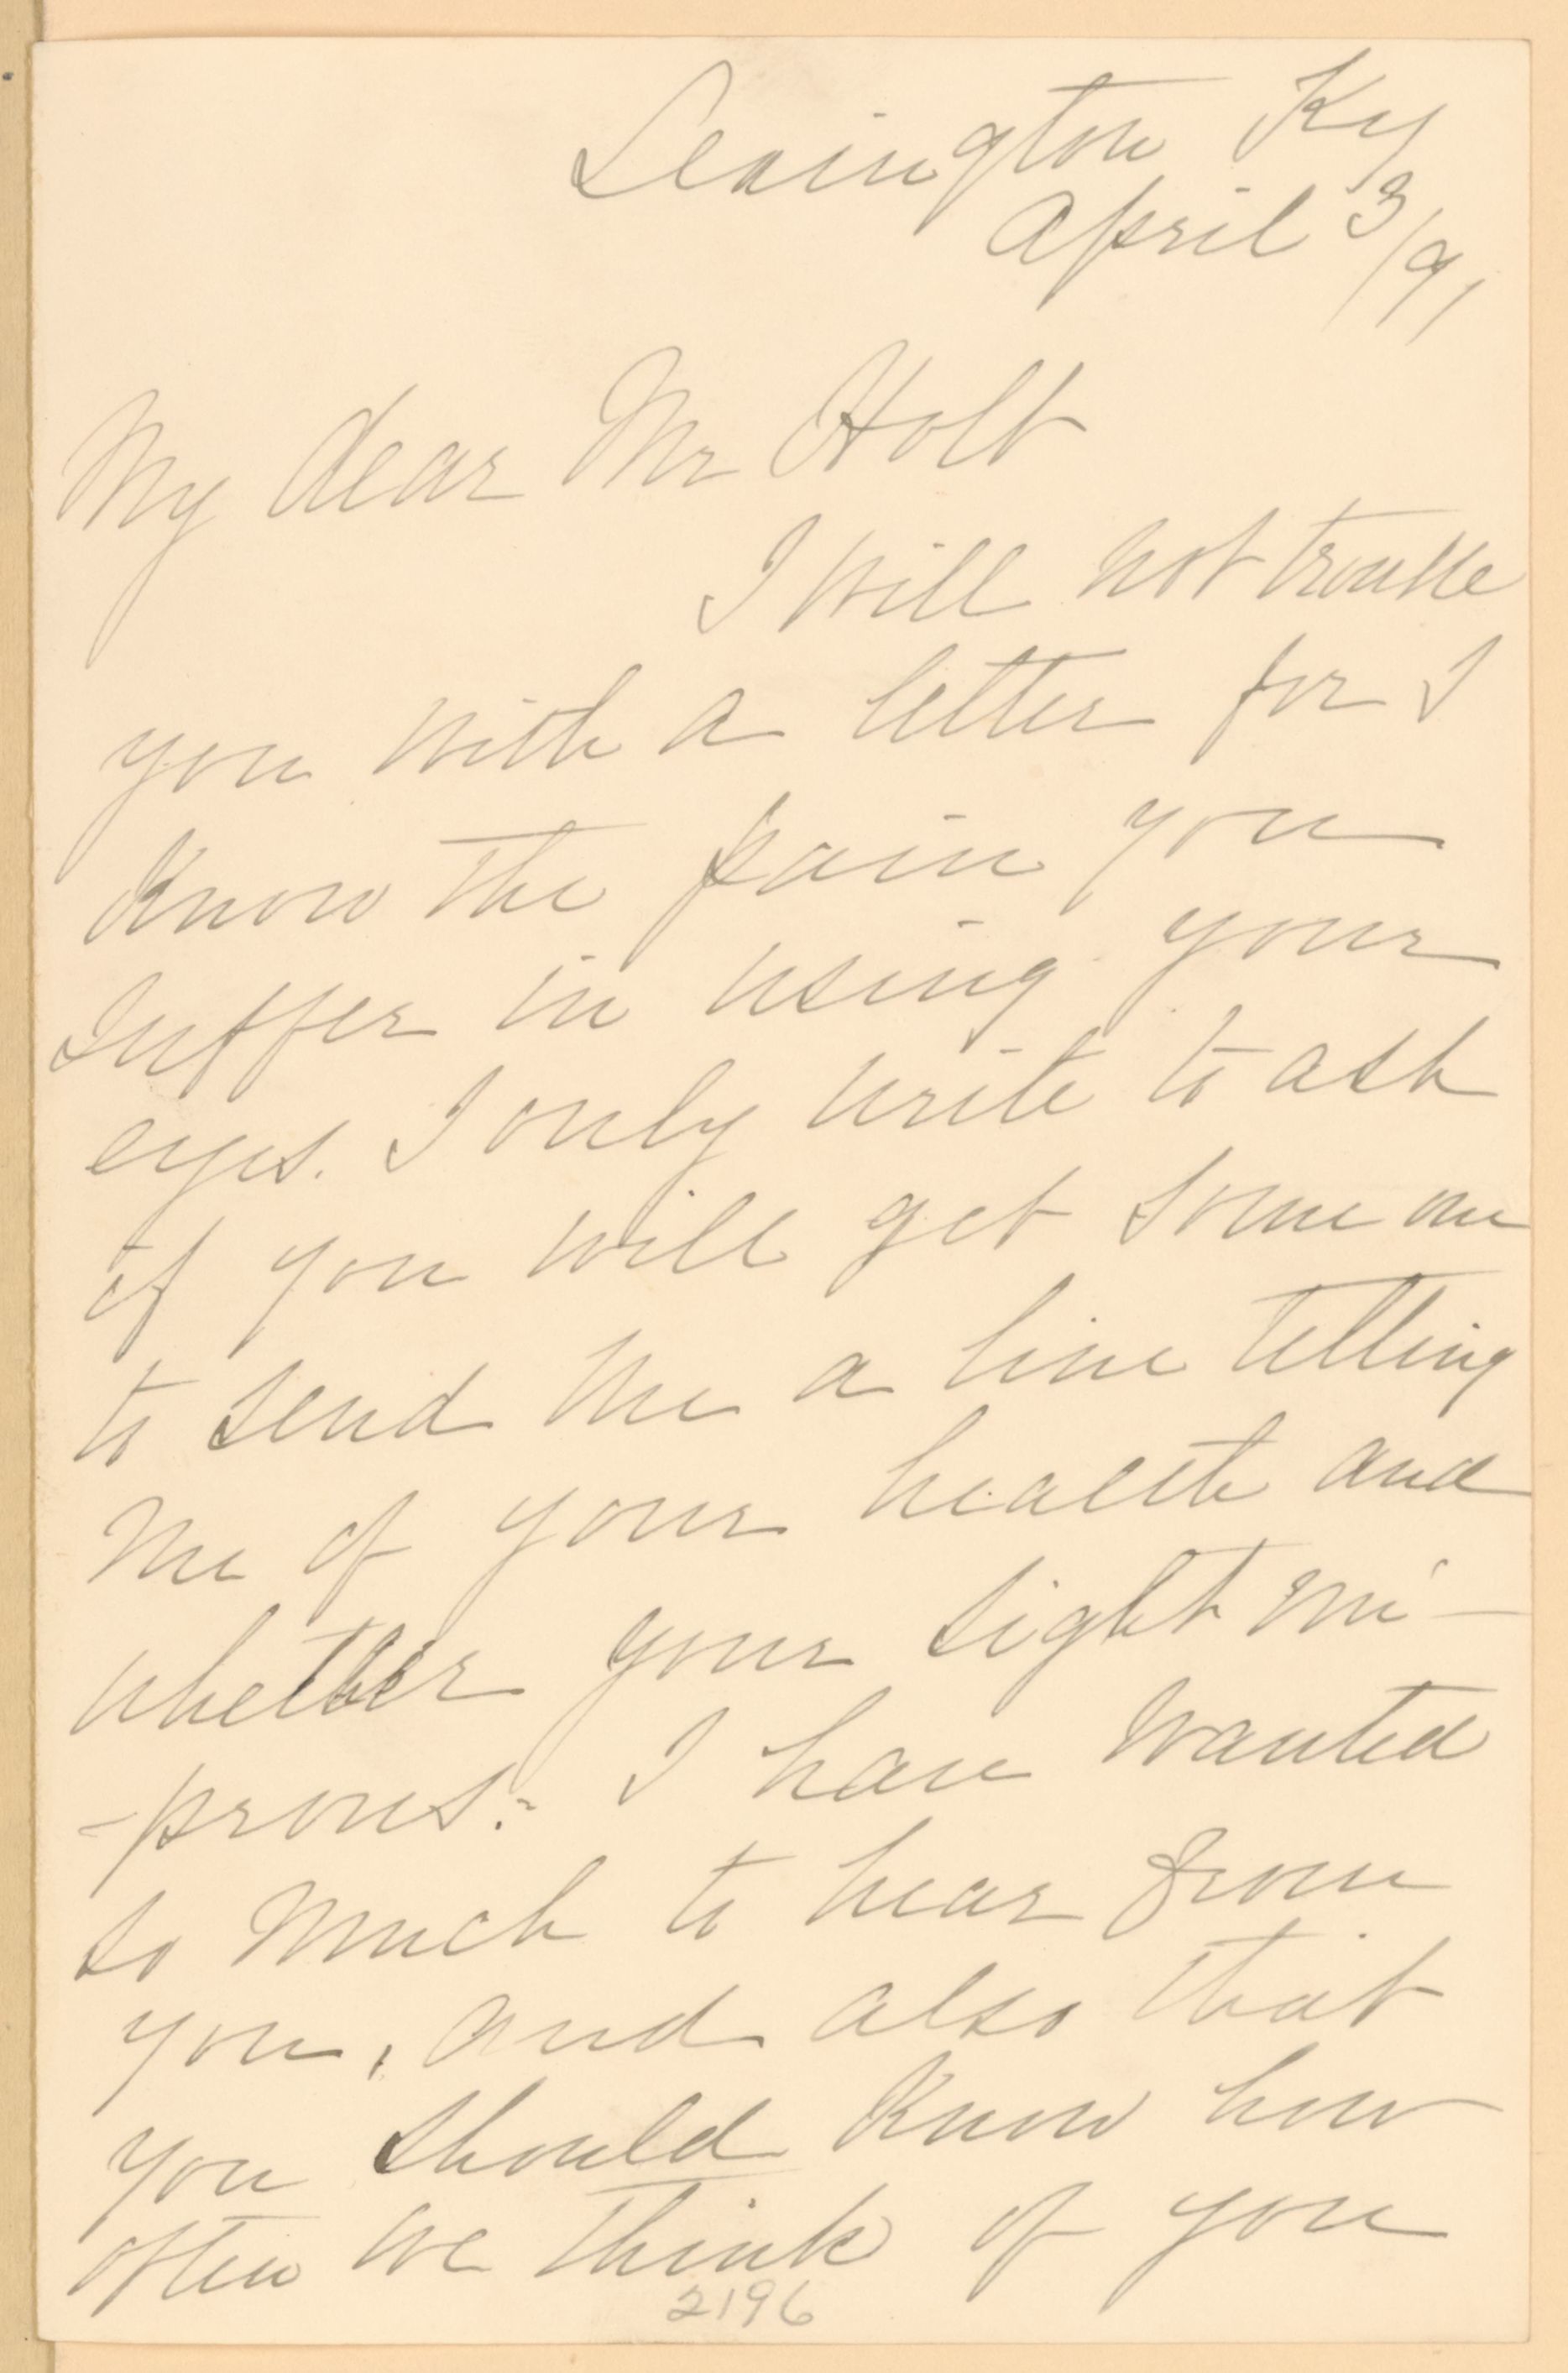 Lexington Ky
April 3/91
My dear Mr Holt
I will not trouble
you with a letter for I
know the pain you
suffer in using your
eyes. I only write to ask
if you will get some one
to send me a line telling
me of your health and
whether your sight im-
-proves. I have wanted
so much to hear from
you, and also that
you should know how
often we think of you
2196